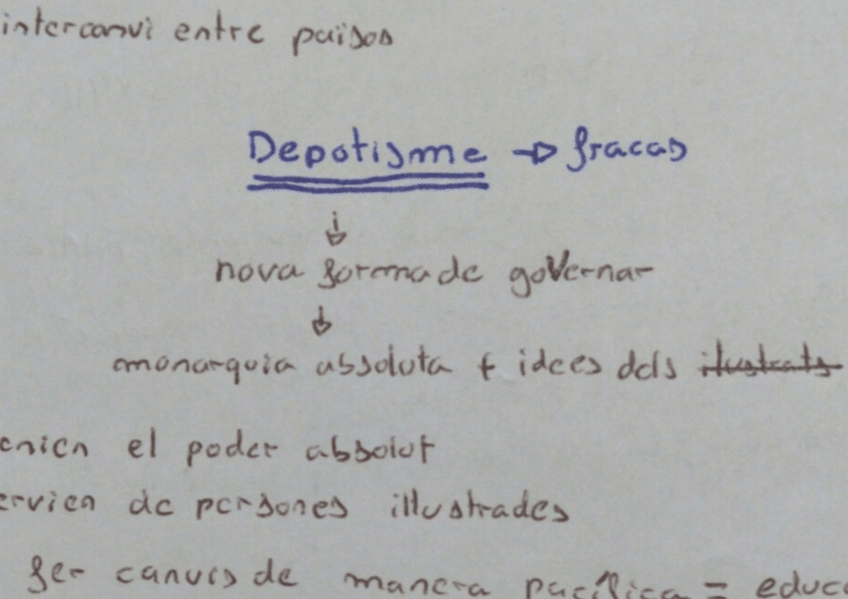 intercanvi entre països
Depotisme → fracas
↓
nova forma de governar
↓
monarquia absoluta + idees dels ilustrats
enien el poder absolut
ervien de persones illustrades
fer canvis de manera pacífica = educa